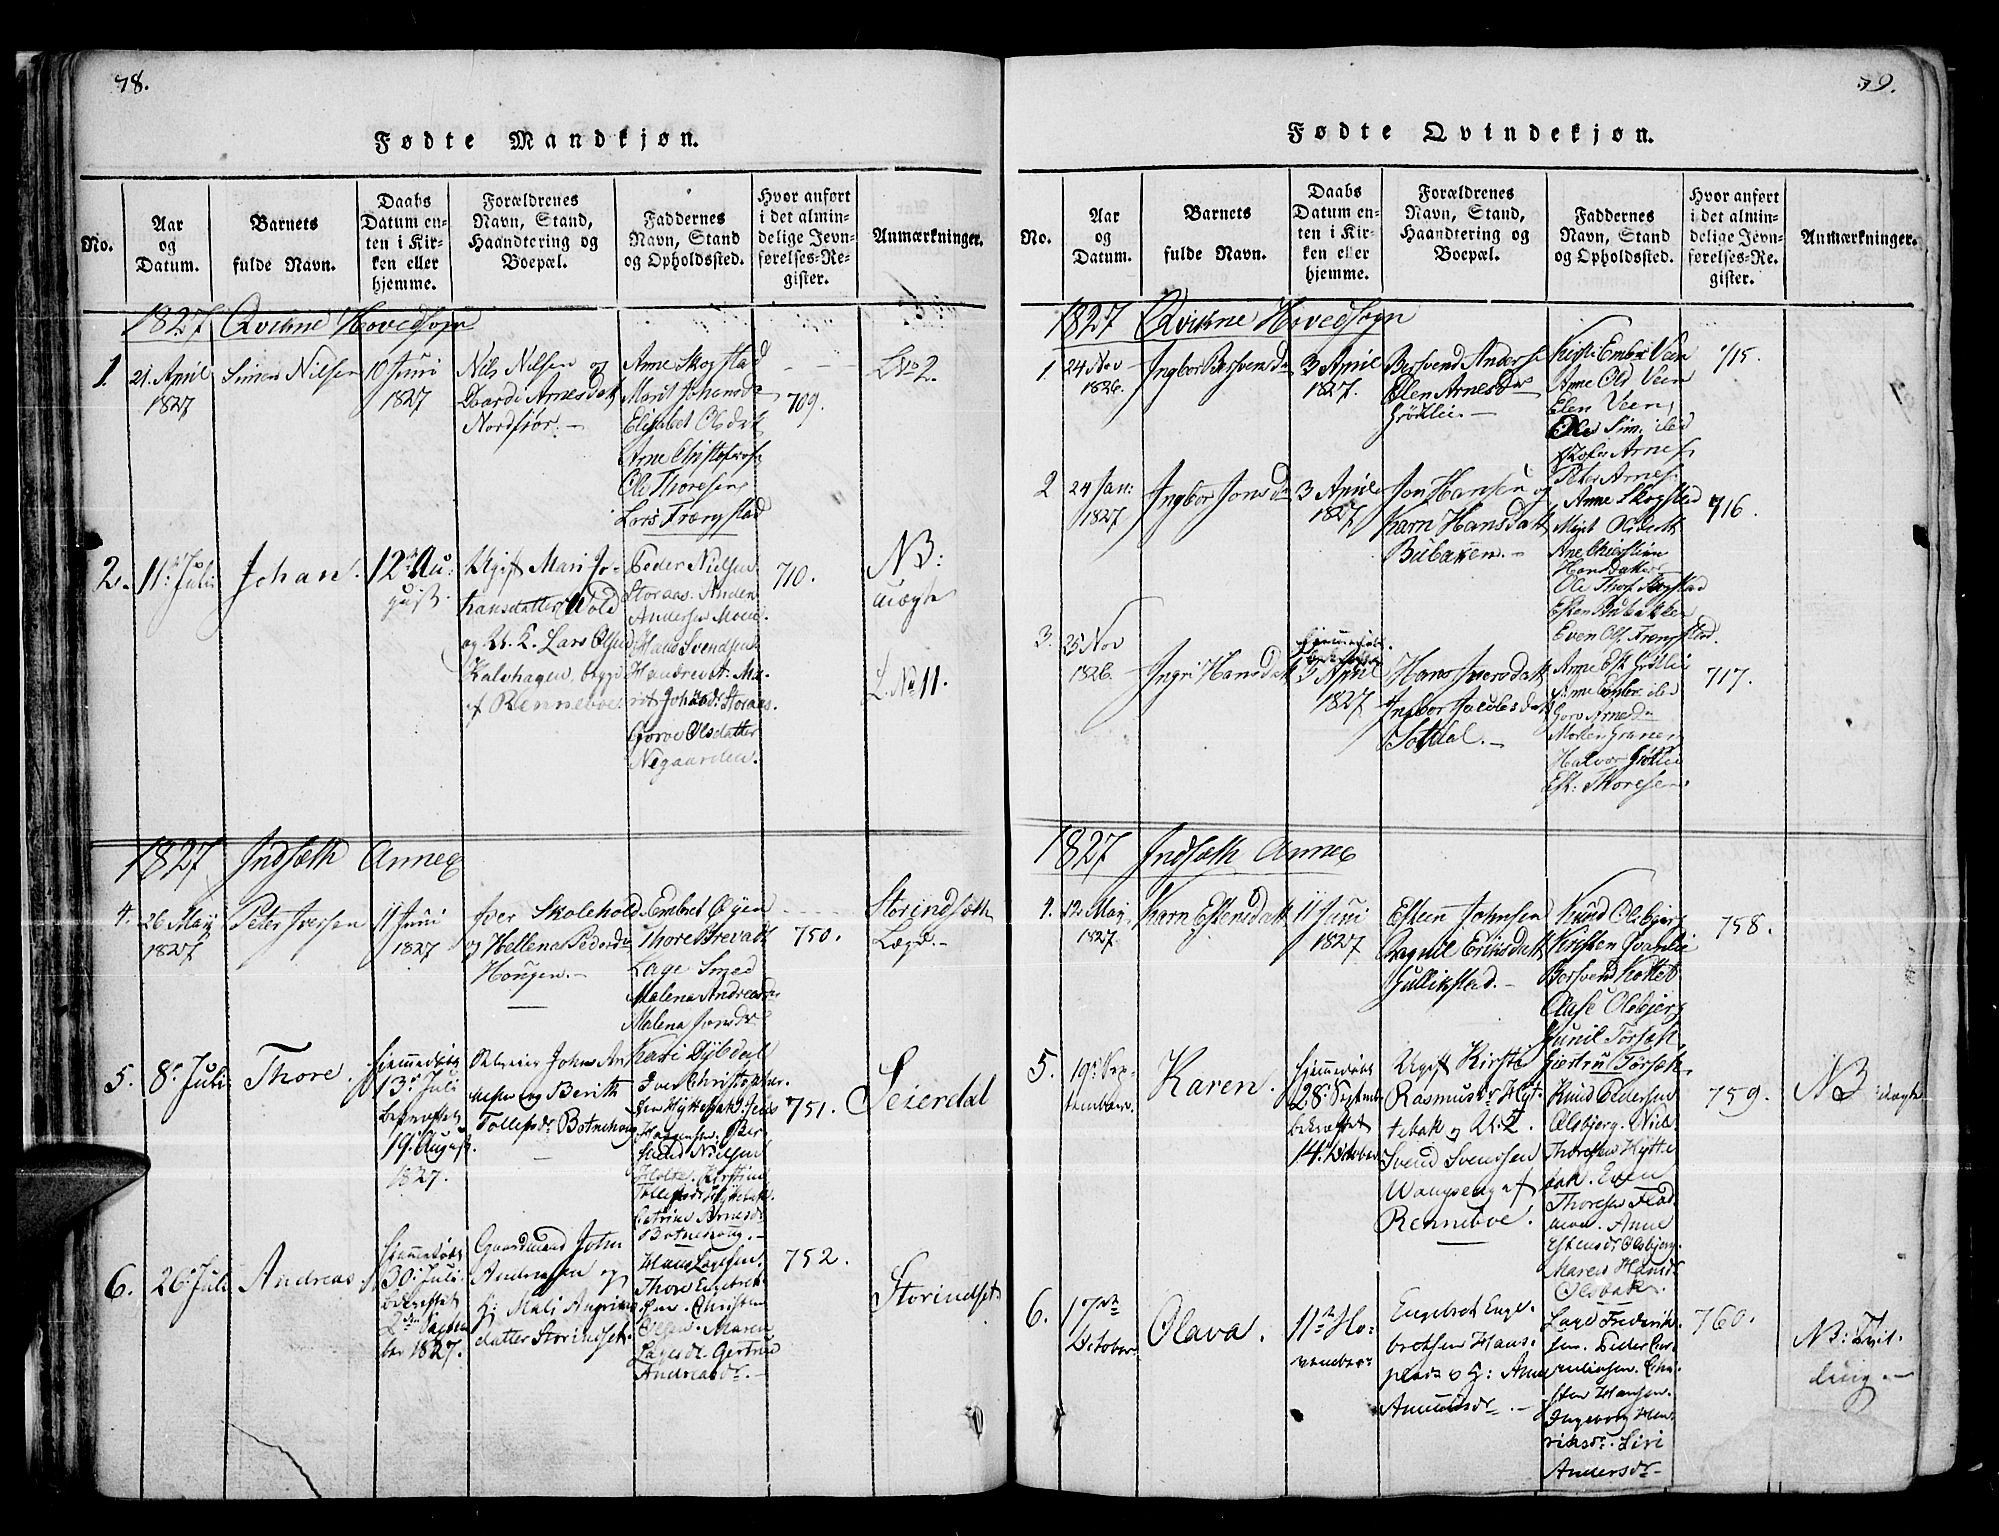 78.
Fødte Mandkjøn.
No.
Aar
og
Datum.
Barnets
fulde Navn.
Daabs
Datum en-
ten i Kir-
ken eller
hjemme.
Forældrenes
Navn, Stand,
Haandtering og
Boepæl.
Faddernes
Navn, Stand
og Opholdssted.
Hvor anført
i det almin-
delige Jevn-
førelses-Re-
gister.
Anmærkninger.
1827 Qvikne Hovedsogn
1.
21. April
1827
Simen Nilsen
10 Juni
1827
Nils Nilsen og
Arnesdatt
Nordsjør.-
Arne Skogstad
Marit Johansd
Elisabet Olsdat
Arne Christofers
Ole Thoresen
Lars Frængstad
709.
L No 2.
2.
11te Juli
Johan.
12te Au-
gust.
Ugift Mari Jo-
hansdatter Wold
og U. K. Lars Olsen
Kalvhagen, bygd
af Renneboe.
Peder Nielsen
Storaas. Anden
Andersen Moen
Hans Svendsen
rit Johansd: Storaas.
Gorve Olsdatter
Negaarden.
710.
NB:
uægte
L. No 11.
1827 Indsæth Annex
4.
26 May
1827
Peter Iversen
11 Juni
1827
Iver Skolehold
og Hellena Pedersd
Hougen.-
Embret Øyen
Thore Brevadt
Lage Smed
Malena Andreasd
Malena Jonsdr
750.
Storindsæth
Lægd-
5.
8de Juli
Thore.
hjemmedøbt
13de Juli
bekræftet
19de August
1827.
Johan An
dersen og Berith
Tollefsdr Botnehoug
Kari Dybdal
Iver Christopher-
sen Hyttebak. Jens
Hansen. Ber-
svend Nielsen
Holte. Kirstine
Tollefsdr Hyttebak
Catrine Arnesdr
Botnehoug.-
751.
Seierdal
6.
26de Juli
Andreas.
hjemmedøbt
30de Juli
bekræftet
2den Septem-
ber 1827.
Gaardmand John
Andreasen og
H: Mali
datter Storindset.
Hans Lagesen.
Thore Engebret-
sen. Christen
Øien. Maren
Lagesdr. Gertrud
Andreasdr.-
752.
Storindset
79.
Fødte Qvindekjøn.
No.
Aar
og
Datum.
Barnets
fulde Navn.
Daabs
Datum en-
ten i Kir-
ken eller
hjemme.
Forældrenes
Navn, Stand,
Haandtering og
Boepæl.
Faddernes
Navn, Stand
og Opholdssted.
Hvor anført
i det almin-
delige Jevn-
førelses-Re-
gister.
Anmærkninger.
1827 Qvikne Hovedsogn
1.
24 Nov
1826.
Ingbor Bersvensd
3 April
1827.
Bersvend Anders
Elen Arnesdr
Grøtlie.-
Kirsti Embr: Veen
Anne Old Veen
Elen Veen
715.
2
24 Jan:
1827
Ingbor Jonsd
3 April
1827
Jon Hansen og
Karn Hansdatt
Bubaken.-
Peter Arnes.
Anne Skogstad
Marit Olsdatt
Ane Christien
Hansdatter
Ole Thor: Skogstad
Esten Bubakken
Even Ols: Frængstad.
716.
3.
25 Nov
1826.
Ingri Hansdatt
3 April
1827
Hans Iversdatt
Ingbor Jacobsdat
Soldal.-
Anne Est Grøtlie
Goro Arnesd
Morten Graner
Halvor Grøtlie
Est: Thoresen.
717.
1827 Indsæth Annex
4.
12 Maj
1827
Karn Estensdatt
11 Juni
1827
Esten Johnsen
Ragnil Erinsdatt
Gullikstad.-
Knud Olsbjerg
Kirsten Qvanlie
Bersvend Kaltet
Oluse Olsbjerg
Gunil Torsæth
758.
5.
19de Sep-
tember.
Karen.
hjemmedøbt
28de Septemb
bekræftet
14de October
Ugift Kirsti
Rasmusdr Hyt-
tebak og U. K.
Svend Svensen
Wangseng af
Renneboe.
Giertru Torsæth
Knud Pedersen
Olsbjerg. Niels
Thoresen Hytte
bak. Even
Thoresen Flad-
moe. Anne
Estensdr Olsbjerg.
Maren Hansdr
Olsbak.
759.
NB: uægte
6.
17de
October
Olava.
11te No-
vember
Engebret Enge-
bretsen Haus-
plads og H: Anne
Amundsdr.-
Lage Fredrik-
sen. Peder Cor-
neliussen. Chri-
sten Hansen.
Ingeborg Hen-
riksdr. Siri
Andersdr-
760.
NB: Tvil-
ling.-